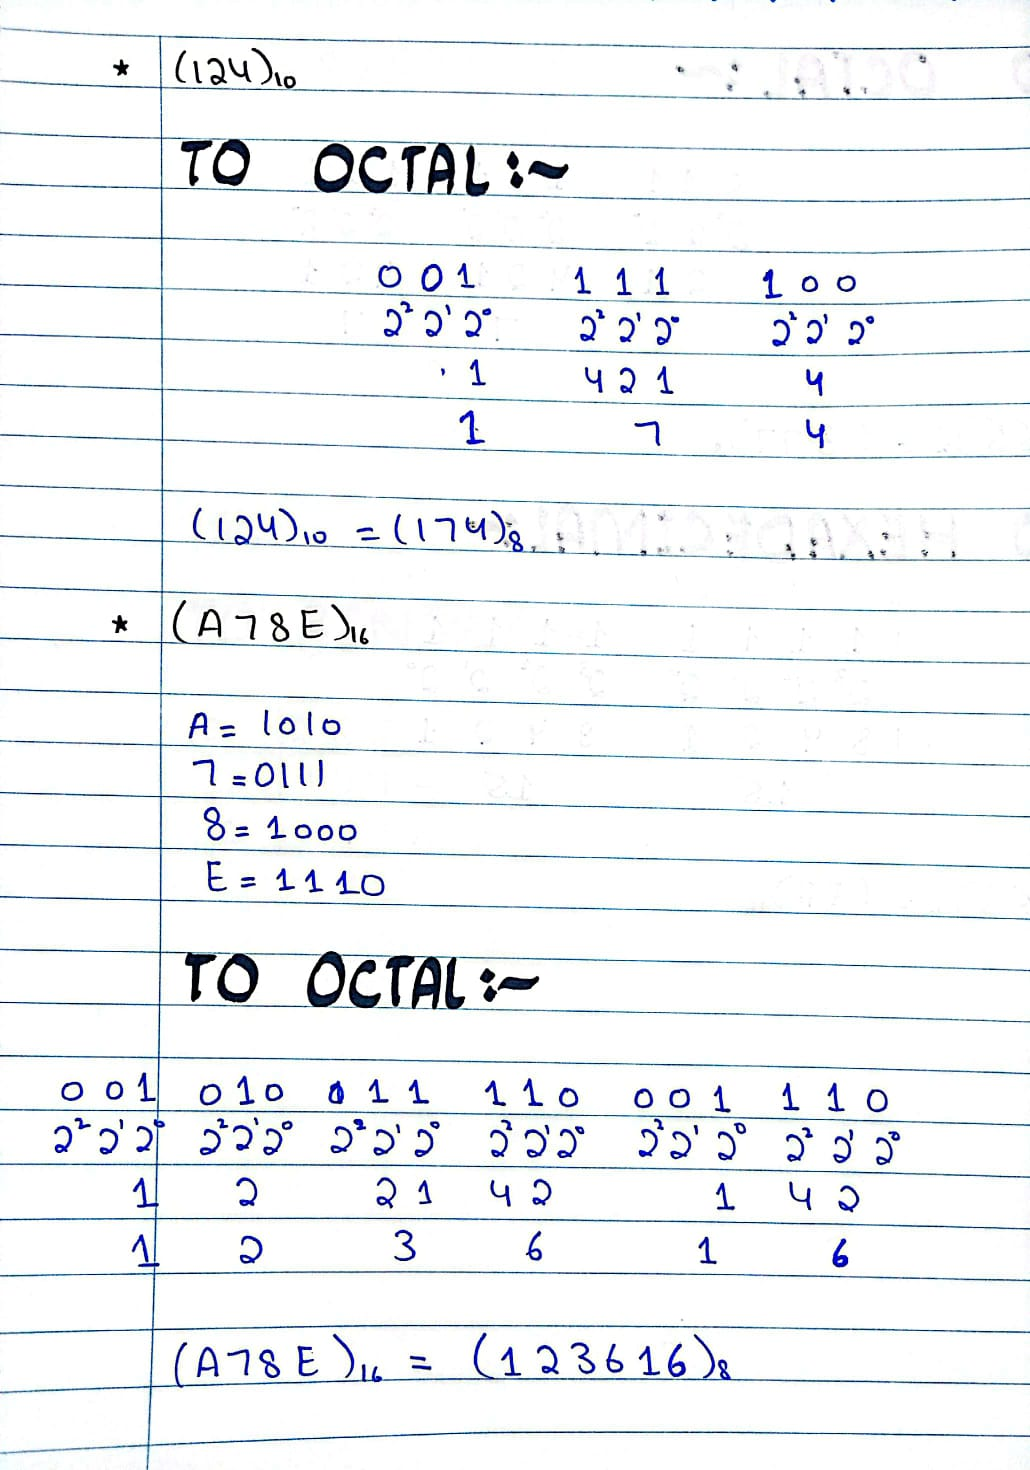 * (124)₁₀
TO OCTAL :~
0 0 1 1 1 1 1 0 0
2² 2¹ 2⁰ 2² 2¹ 2⁰ 2² 2¹ 2⁰
1 4 2 1 4
1 7 4
(124)₁₀ = (174)₈
* (A78E)₁₆
A = 1010
7 = 0111
8 = 1000
E = 1110
TO OCTAL :~
0 0 1 0 1 0 0 1 1 1 1 0 0 0 1 1 1 0
2² 2¹ 2⁰ 2² 2¹ 2⁰ 2² 2¹ 2⁰ 2² 2¹ 2⁰ 2² 2¹ 2⁰ 2² 2¹ 2⁰
1 2 2 1 4 2 1 4 2
1 2 3 6 1 6
(A78E)₁₆ = (123616)₈